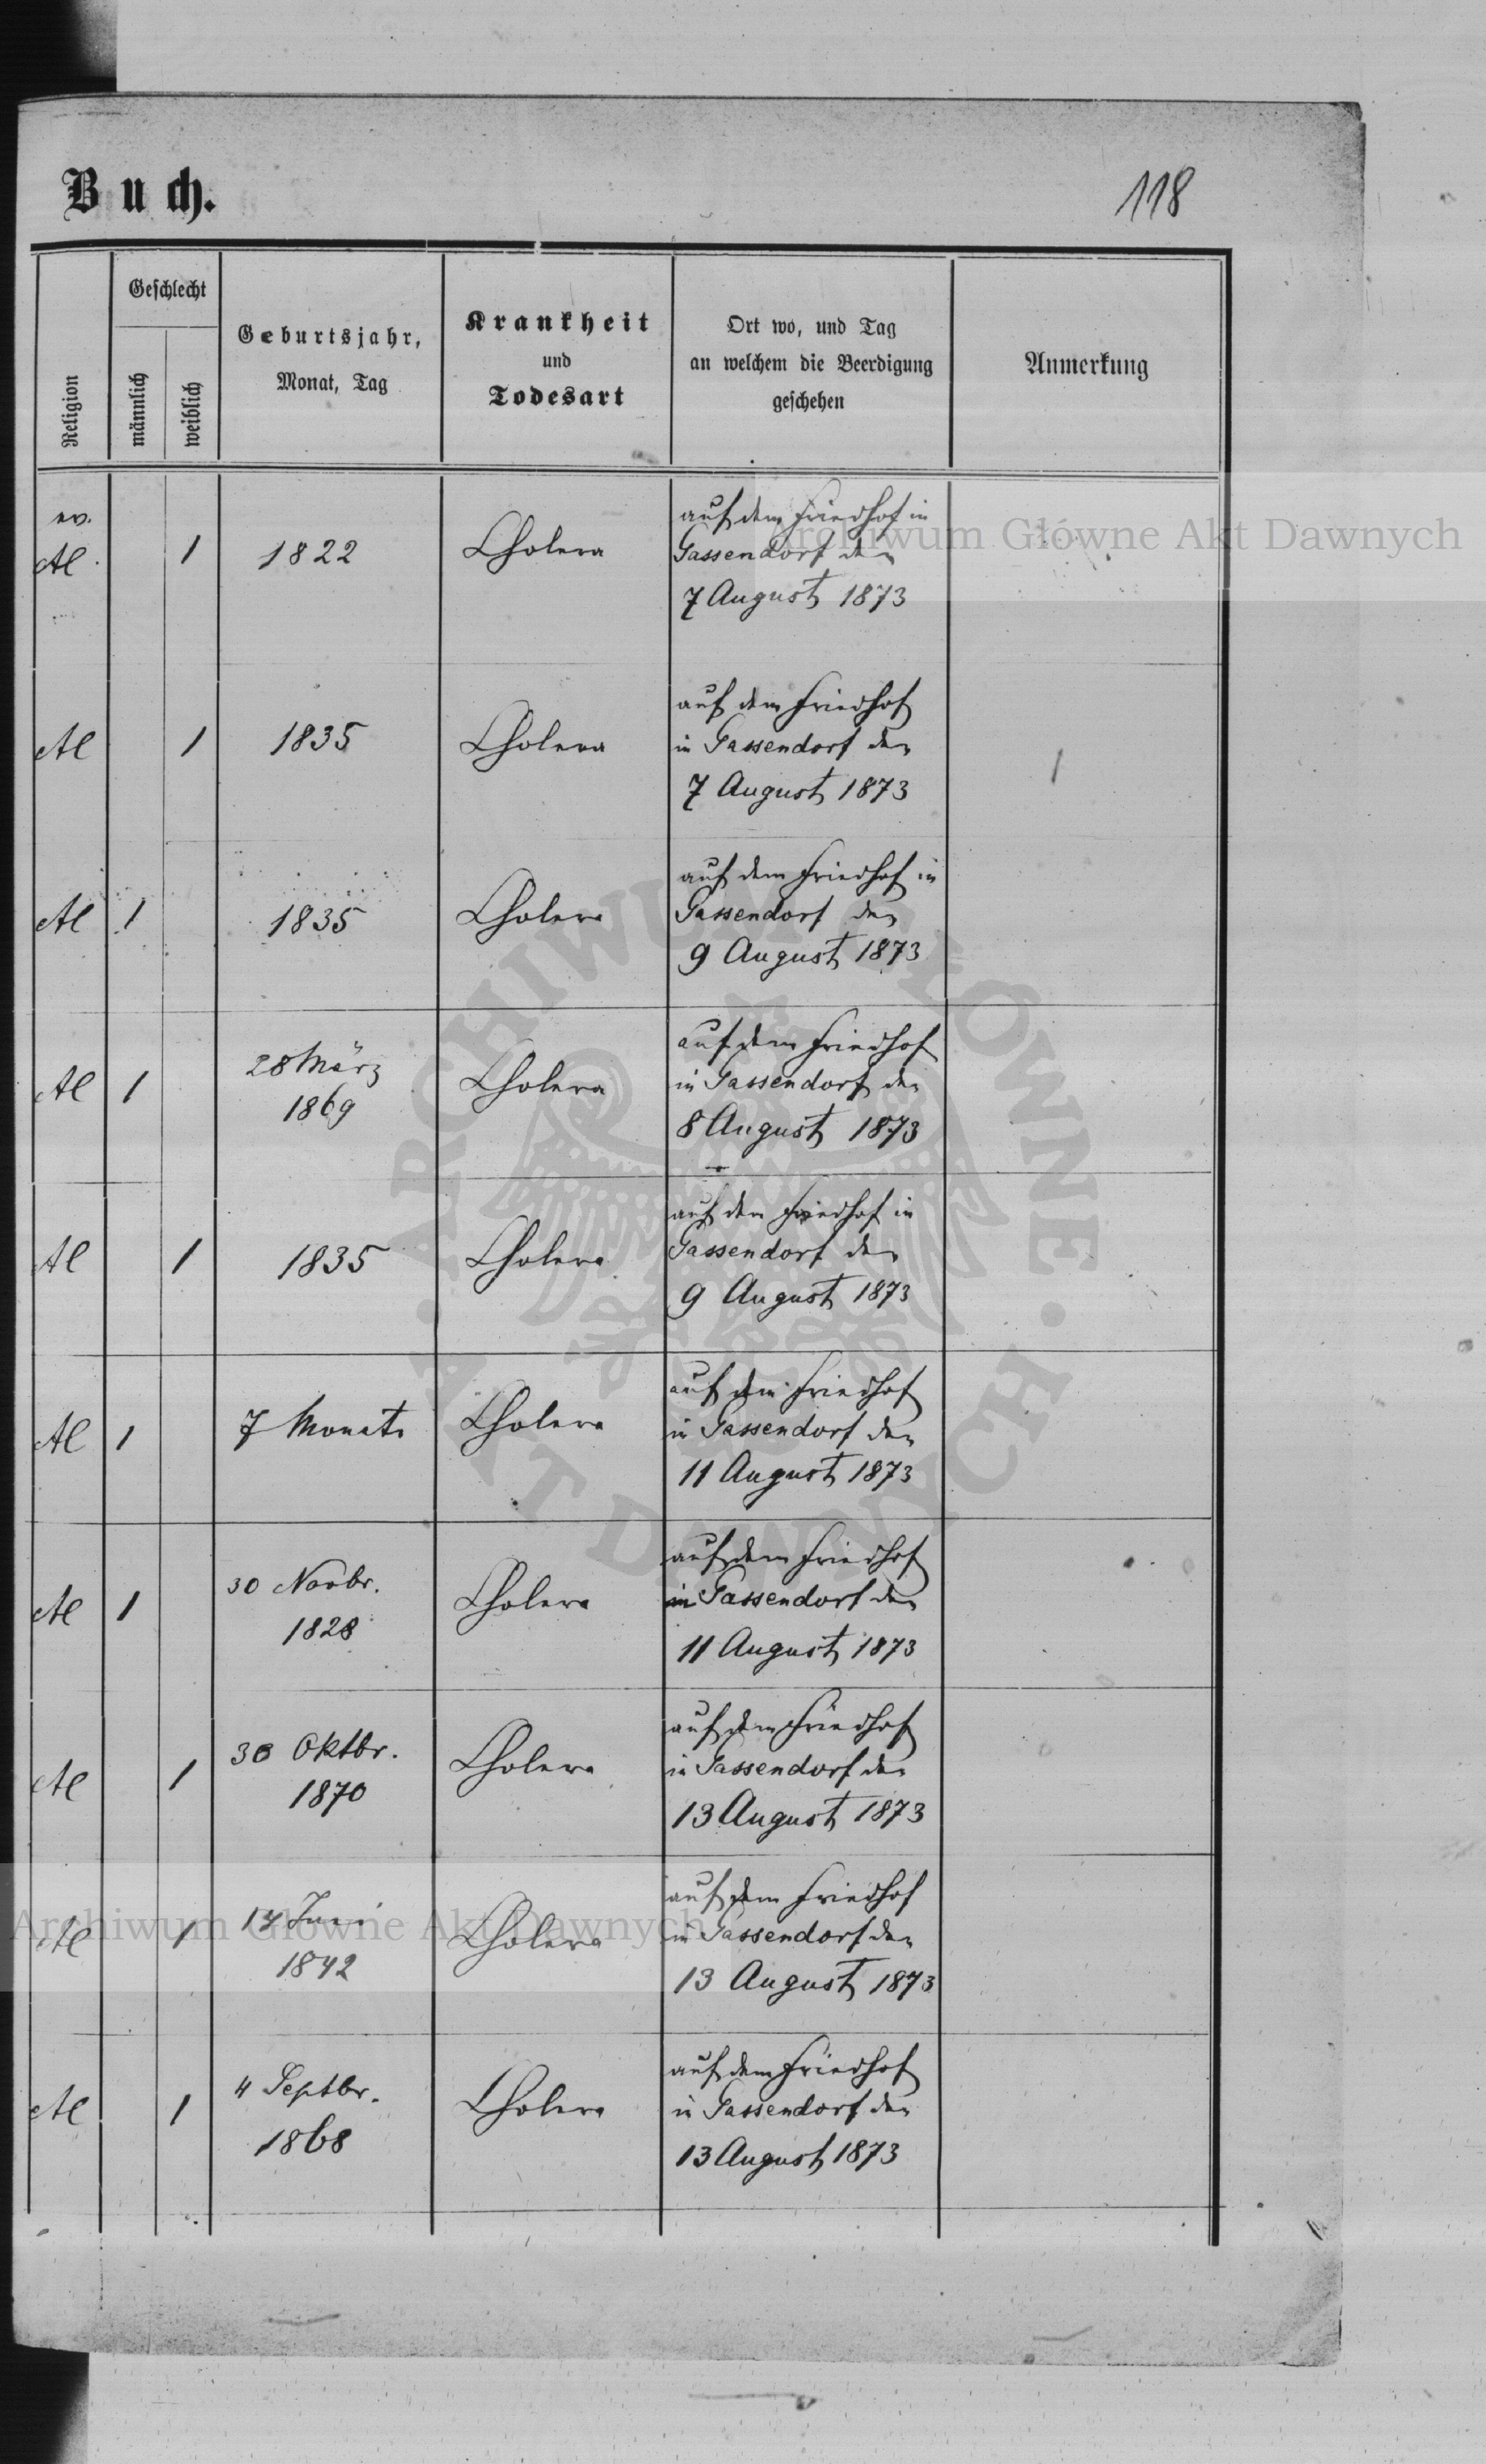 Buch.
118
Religion
Geschlecht
männlich
weiblich
Geburtsjahr,
Monat, Tag
Krankheit
und
Todesart
Ort wo, und Tag
an welchem die Beerdigung
geschehen
Anmerkung
ev.
AC 1 1822 Cholera
auf dem Friedhof in
Gassendorf den
7 August 1873
AC 1 1835 Cholera
auf dem Friedhof
in Gassendorf den
7 August 1873
AC 1 1835 Cholera
auf dem Friedhof in
Gassendorf den
9 August 1873
AC 1 28 März
1869
Cholera
auf dem Friedhof
in Gassendorf den
8 August 1873
AC 1 1835 Cholera
auf dem Friedhof in
Gassendorf den
9 August 1873
AC 1 7 Monate Cholera
auf dem Friedhof
in Gassendorf den
11 August 1873
AC 1 30 Novbr.
1828
Cholera
auf dem Friedhof
in Gassendorf den
11 August 1873
AC 1 30 Oktbr.
1870
Cholera
auf dem Friedhof
in Gassendorf den
13 August 1873
AC 1 Juni
1842
Cholera
auf dem Friedhof
in Gassendorf den
13 August 1873
AC 1 4 Septbr.
1868
Cholera
auf dem Friedhof
in Gassendorf den
13 August 1873
Archiwum Główne Akt Dawnych
Archiwum Główne Akt Dawnych
ARCHIWUM GŁÓWNE · AKT DAWNYCH ·